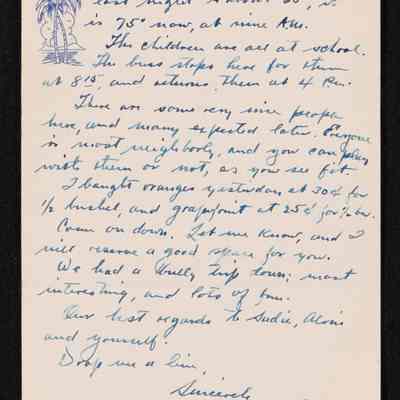 last night
is 75° now, at nine A.M.
The children are all at school.
The buss stops here for them
at 8 15, and returns them at 4 P.M.
There are some very nice people
here, and many expected later. Everyone
is most neighborly, and you can play
with them or not, as you see fit
I bought oranges yesterday at 30¢ for
1/2 bushel, and grapefruit at 25¢ for 1/2 bu.
Come on down. Let me know, and I
will reserve a good space for you.
We had a bully trip down; most
interesting, and lots of fun.
Our best regards to Sadie, Alvin
and yourself.
Drop me a line,
Sincerely